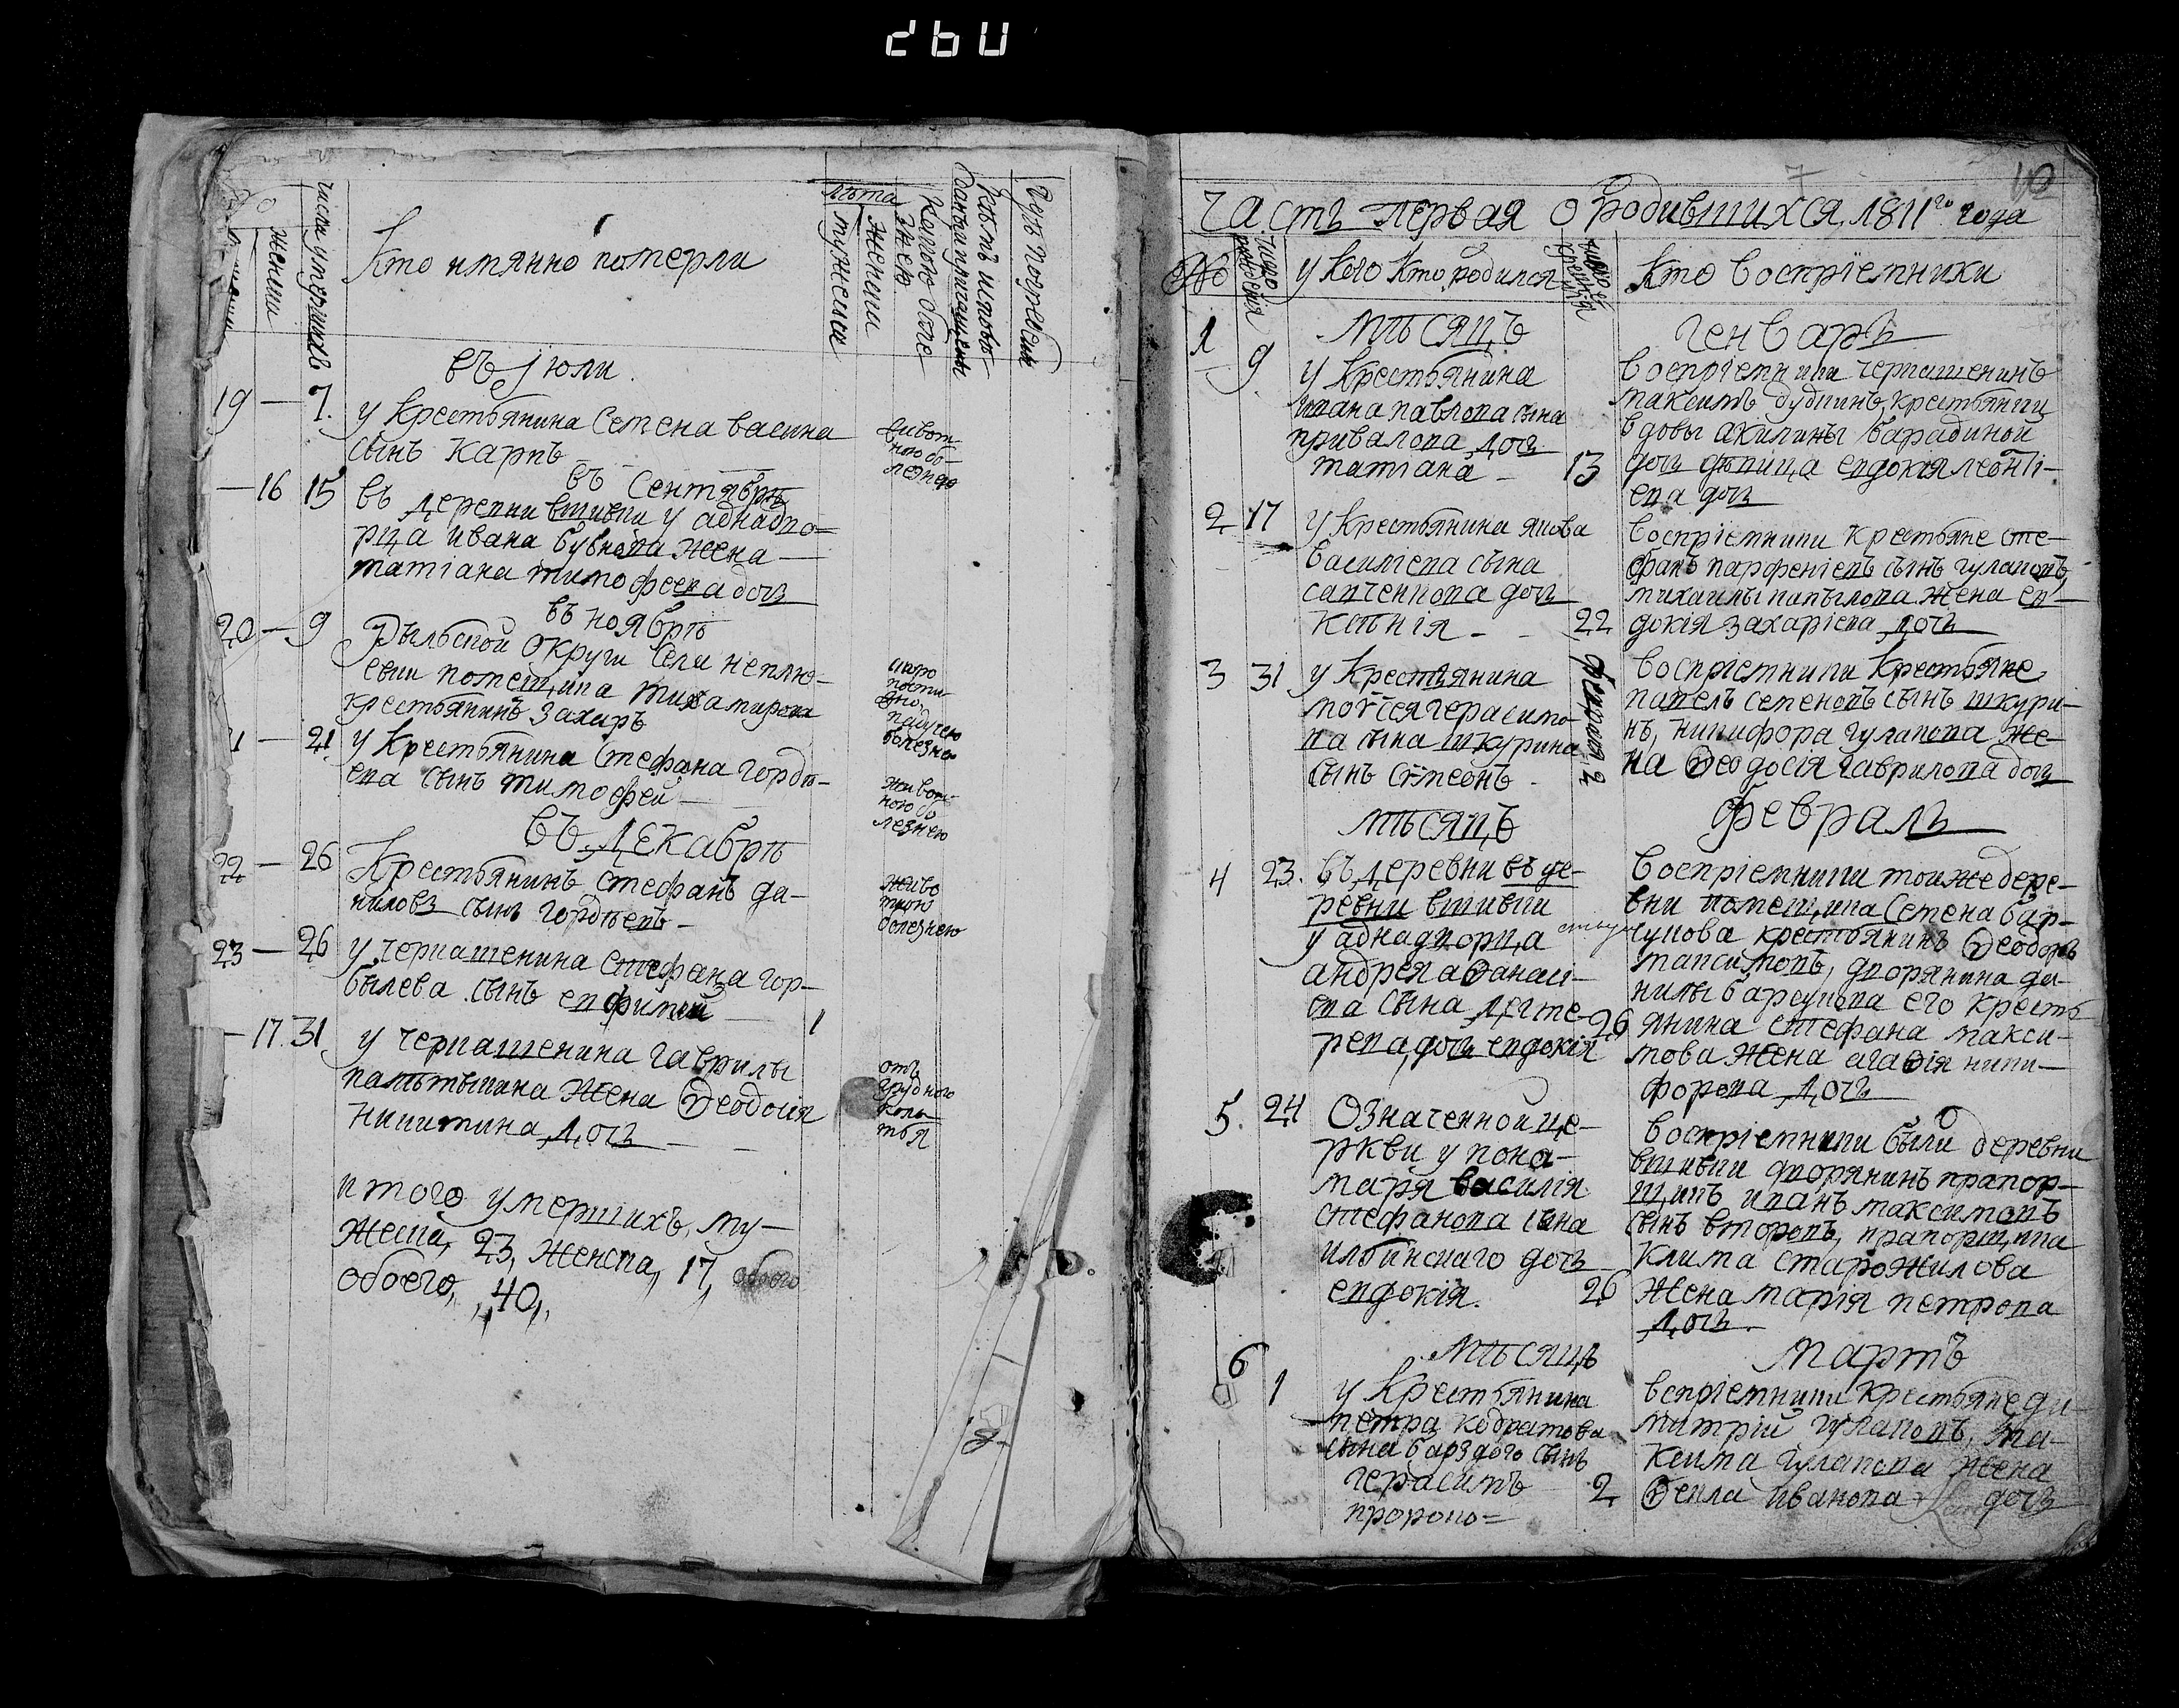 №
мужески
женски
числа умершихъ
Кто имянно померли
лѣта
мужески
женски
какою болезнею
Кемъ исповѣданы и приобщены
Гдѣ погребены
въ Iюли
19 — 7. у Крестьянина Семена васина
сынъ Карпъ
животною болезнею
въ Сентябрѣ
— 16 15 въ деревни вшивки у аднадво=
рца ивана бувнова жена
татiана тимофеева дочь
въ ноябрѣ
20 — 9 Рыльской округи села неплю-
евки помещика тихамирова
крестьянинъ захаръ
падучею
болезнею
21 у Крестьянина Стефана горде-
ева сынъ тимофей
животною болезнею
въ декабрѣ
22 — 26 Крестьянинъ стефанъ да-
ниловъ сынъ гордѣевъ -
болезнею
23 — 26 у черкашенина стефана гор-
былева сынъ евфимий 1
— 17. 31 у черкашенина гаврилы
жена Ѳеодосiя
никитина дочь
отъ
грудного
коло-
тья
итого умершихъ, му-
жеска, 23, женска, 17, обоего
обоего, ,40,,
7
Часть первая о родившихся 1811го года
№
число рождения
у кого кто родился
число крещения
кто восприемники
1 мѣсяцъ генварь
9 у Крестьянина
ивана павлова сына
привалова дочь
татiана — 13
воспрiемники черкашенинъ
максимъ дудкинъ, крестьянки
вдовы акилины барадиной
дочь девица евдокия леонтi-
ева дочь
2 17 у Крестьянина якова
василiева сына
савченкова дочь
ксенiя - - 22
воспрiемники крестьяне сте-
фанъ парфенiевъ сынъ гулаковъ,
михаилы павылова жена ев-
докiя захарiева дочь
3 31 у Крестьянина
моѵсея герасимо-
ва сына шкурина
сынъ симеонъ -
февраля 2
воспрiемники крестьяне
павелъ семеновъ сынъ шкури-
нъ, никифора гулакова же-
на Ѳеодосiя гаврилова дочь
мѣсяцъ февраль
4 23. въ деревни въ де-
ревни вшивки
у аднадворца
андрея аѳанасi-
ева сына дегте-
рева дочь евдокiя 26
воспрiемники тоиже дере-
вни помещика семена бар-
сукова крестьянинъ Ѳеодоръ
максимовъ, дворянина да-
нилы барсукова его кресть-
янина стефана макси-
мова жена агаѳiя ники-
форова дочь
5. 24 Означенной це-
ркви у поно-
маря василiя
стефанова сына
ильинскаго дочь
евдокiя. 26
воспрiемники были деревни
вшивки дворянинъ прапор-
щикъ иванъ максимовъ
сынъ второвъ, прапорщика
клима старожилова
жена марiя петрова
дочь
6 мѣсяцъ мартъ
1 у Крестьянина
петра кодратова
сына барздого сынъ
герасимъ 2
вспрiемники крестьяне ди-
митрiй гулаковъ, ма-
ксима гулакова жена
Ѳекла иванова дочь